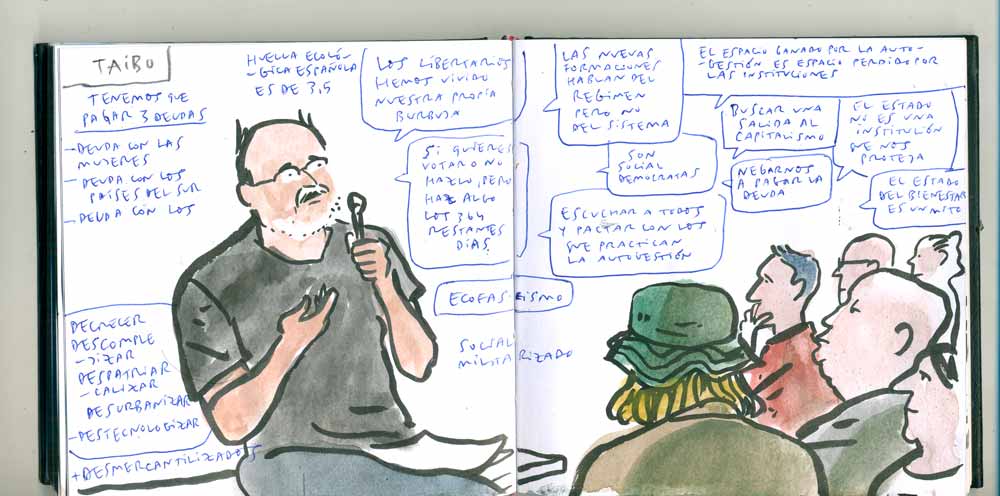 TAIBO
TENEMOS QUE
PAGAR 3 DEUDAS
- DEUDA CON LAS
MUJERES
- DEUDA CON LOS
PAÍSES DEL SUR
- DEUDA CON LOS
HUELLA ECOLÓ-
-GICA ESPAÑOLA
ES DE 3,5
LOS LIBERTARIOS
HEMOS VIVIDO
NUESTRA PROPIA
BURBUJA
SI QUIERES
VOTAR O NO
HAZLO, PERO
HAZ ALGO
LOS 364
RESTANTES
DÍAS
ECOFASCISMO
SOCIAL
MILITARIZADO
DECRECER
DESCOMPLE
-JIZAR
DESPATRIAR
-CALIZAR
DESURBANIZAR
-DESTECNOLOGIZAR
+DESMERCANTILIZADOS
LAS NUEVAS
FORMACIONES
HABLAN DEL
REGIMEN
PERO NO
DEL SISTEMA
SON
SOCIAL
DEMOCRATAS
ESCUCHAR A TODOS
Y PACTAR CON LOS
QUE PRACTICAN
LA AUTOGESTIÓN
EL ESPACIO GANADO POR LA AUTO-
-GESTIÓN ES ESPACIO PERDIDO POR
LAS INSTITUCIONES
BUSCAR UNA
SALIDA AL
CAPITALISMO
NEGARNOS
A PAGAR LA
DEUDA
EL ESTADO
NO ES UNA
INSTITUCIÓN
QUE NOS
PROTEJA
EL ESTADO
DEL BIENESTAR
ES UN MITO